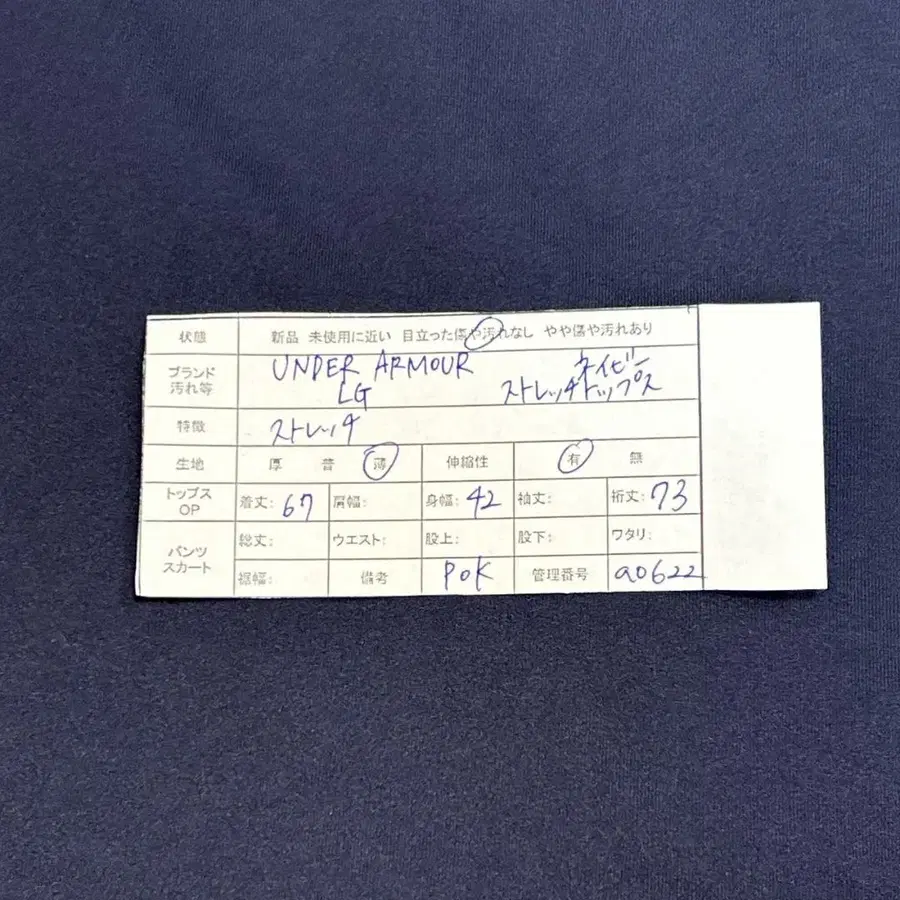 状態 新品 未使用に近い 目立った傷や汚れなし やや傷や汚れあり
ブランド 汚れ等 UNDER ARMOUR ネイビー
LG ストレッチトップス
特徴 ストレッチ
生地 厚 普 薄 伸縮性 有 無
トップス OP 着丈: 67 肩幅: 身幅: 42 袖丈: 裄丈: 73
パンツ スカート 総丈: ウエスト: 股上: 股下: ワタリ:
裾幅: 備考 POK 管理番号 a0622